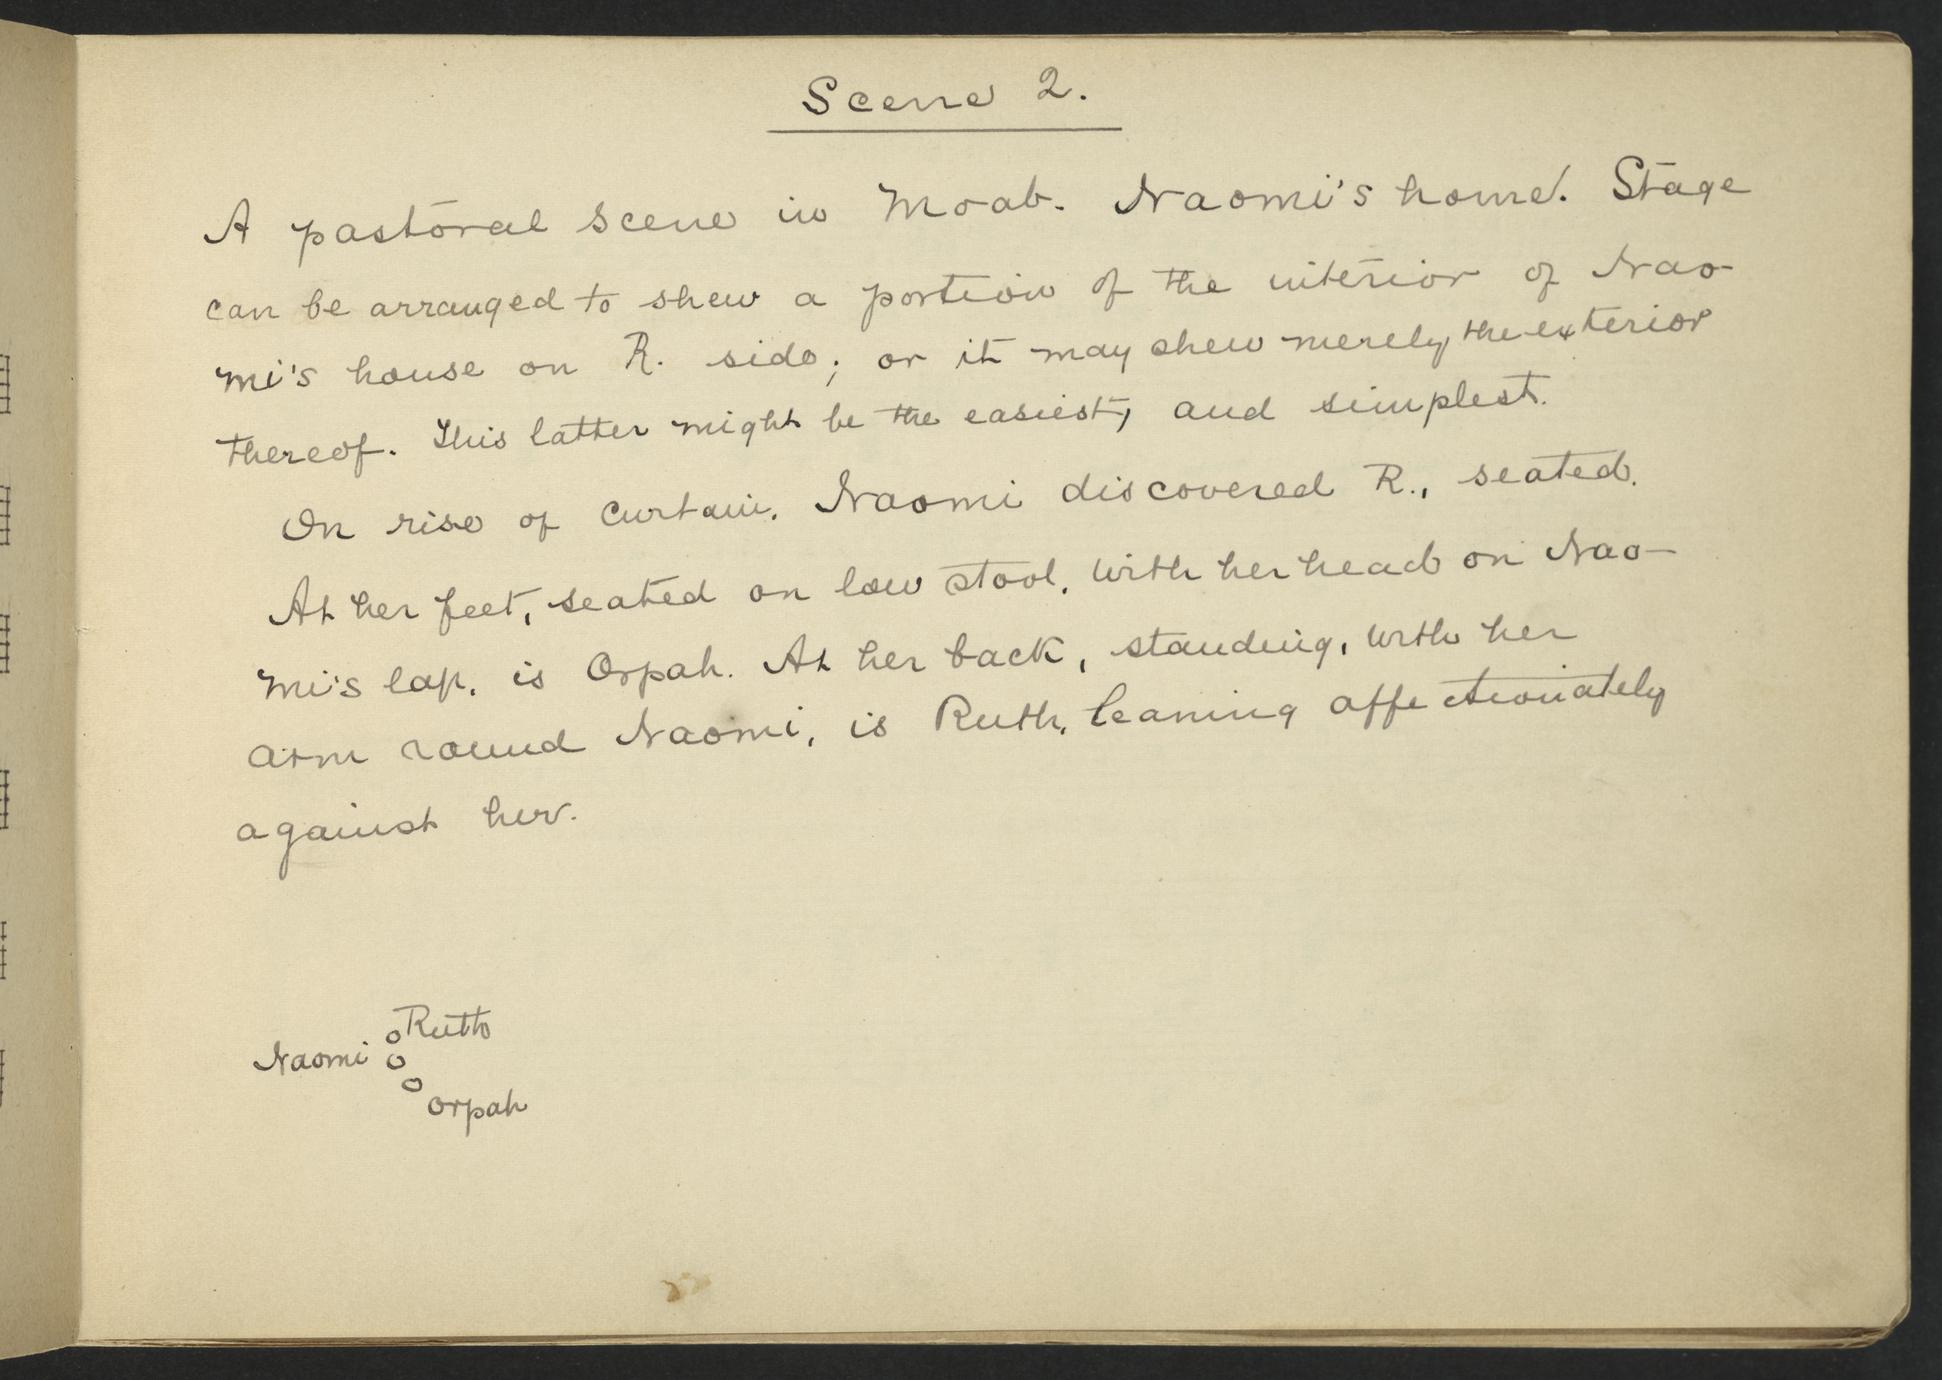 Scene 2.
A pastoral scene in Moab. Naomi's home. Stage
can be arranged to shew a portion of the interior of Nao-
mi's house on R. side; or it may shew merely the exterior
thereof. This latter might be the easiest, and simplest.
On rise of curtain, Naomi discovered R., seated.
At her feet, seated on low stool, with her head on Nao-
mi's lap, is Orpah. At her back, standing, with her
arm round Naomi, is Ruth, leaning affectionately
against her.
Ruth
Naomi
Orpah